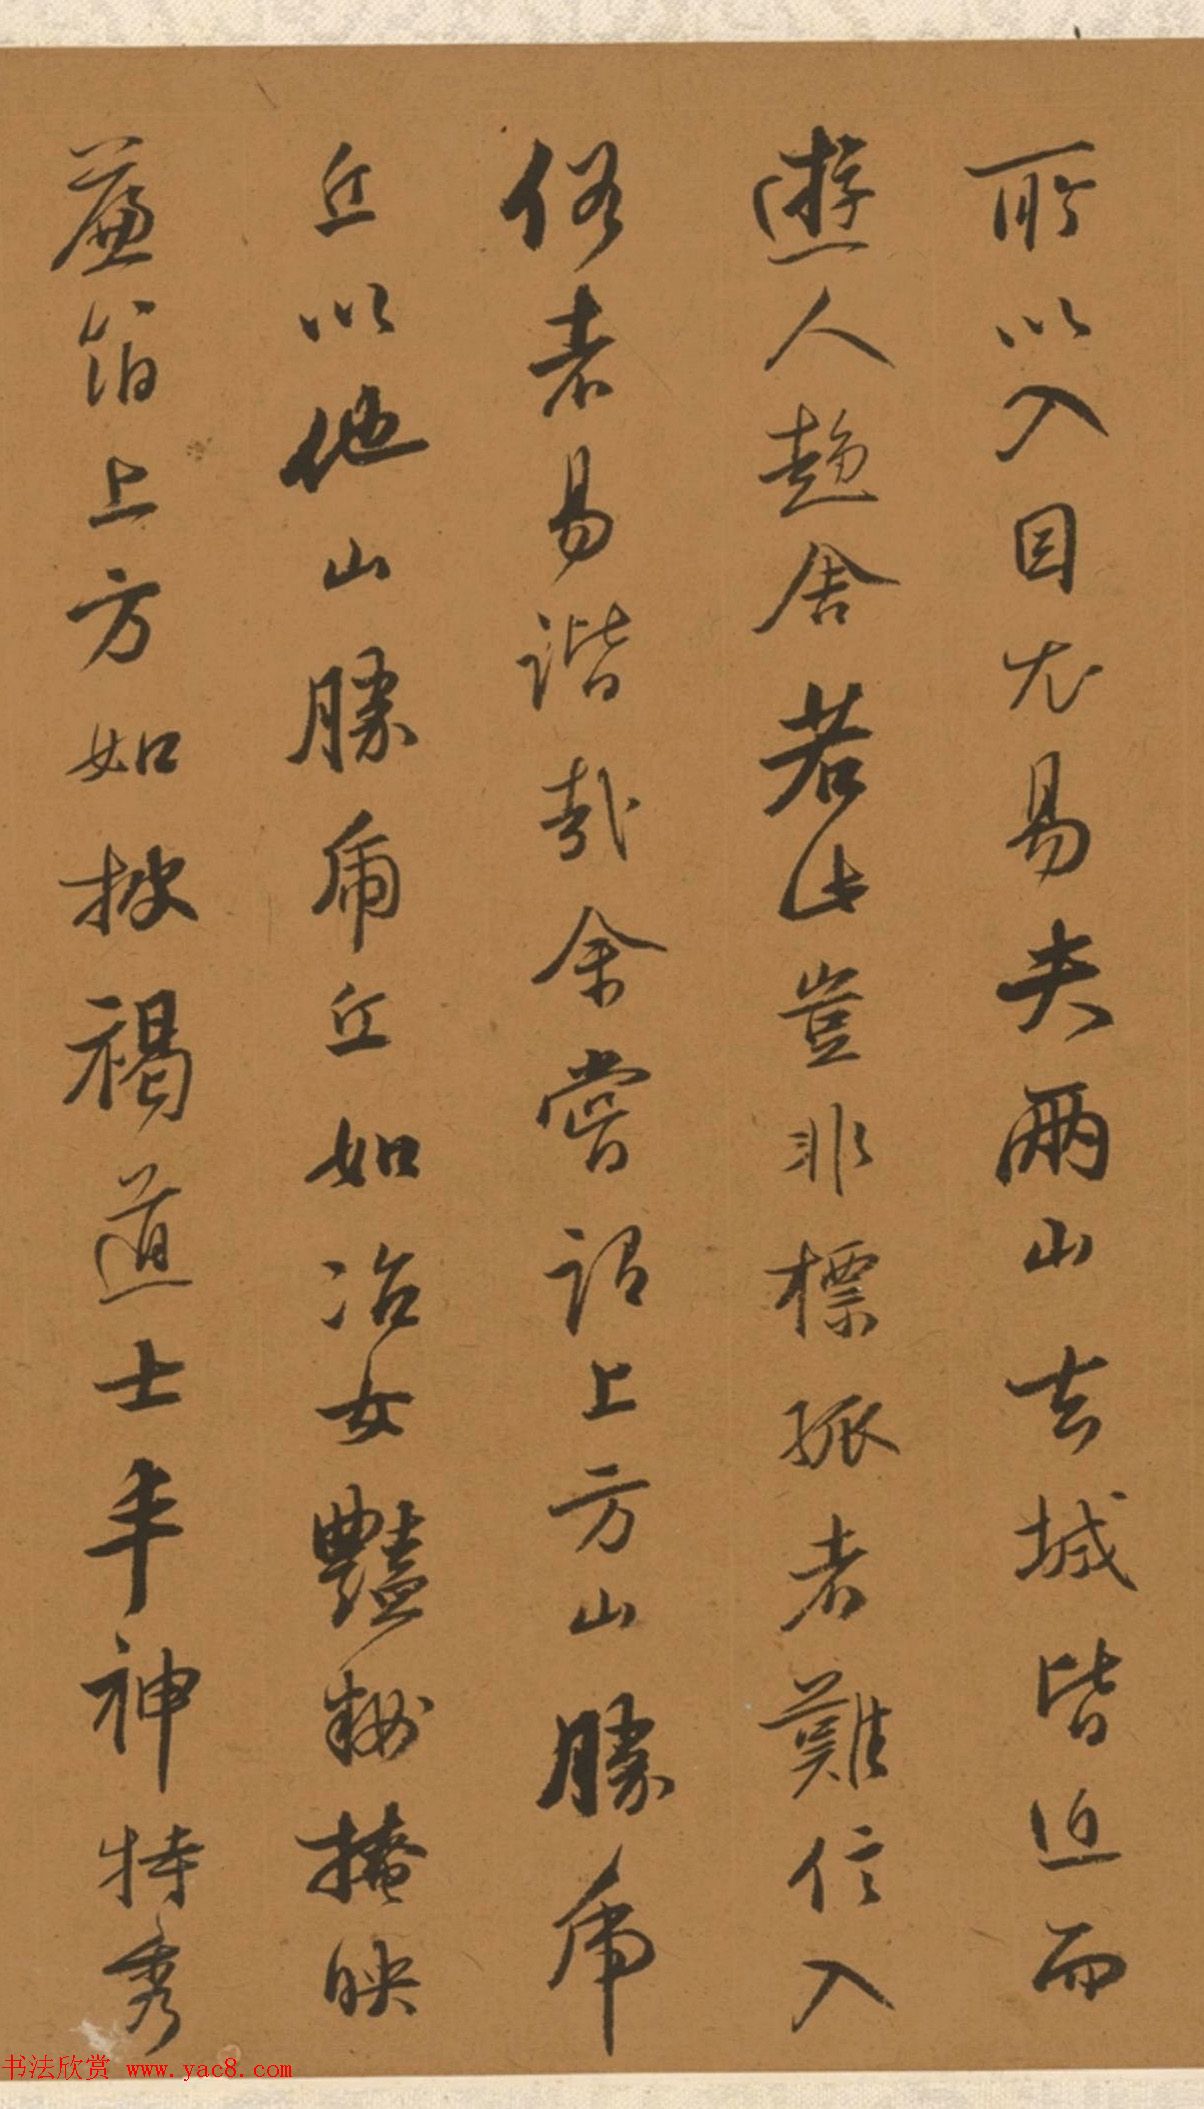 所以入目尤易夫兩山去城皆近而
遊人趨舍若此豈非標孤者難信入
俗者易諧哉余嘗謂上方山勝虎
丘以他山勝虎丘如冶女艷粧掩映
簾箔上方如披褐道士丰神特秀
书法欣赏 www.yac8.com